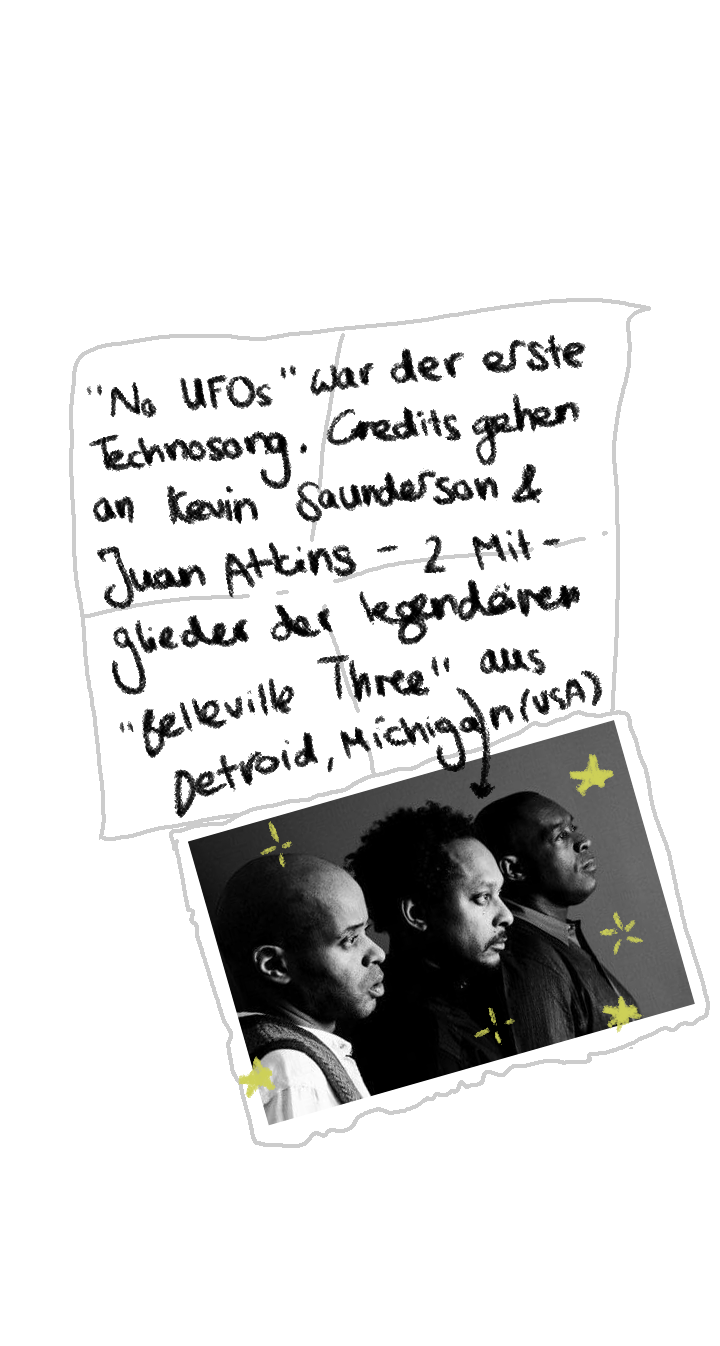 "No UFOs" war der erste
Technosong. Credits gehen
an Kevin Saunderson &
Juan Atkins - 2 Mit-
glieder der legendären
"Belleville Three" aus
Detroid, Michigan (USA)